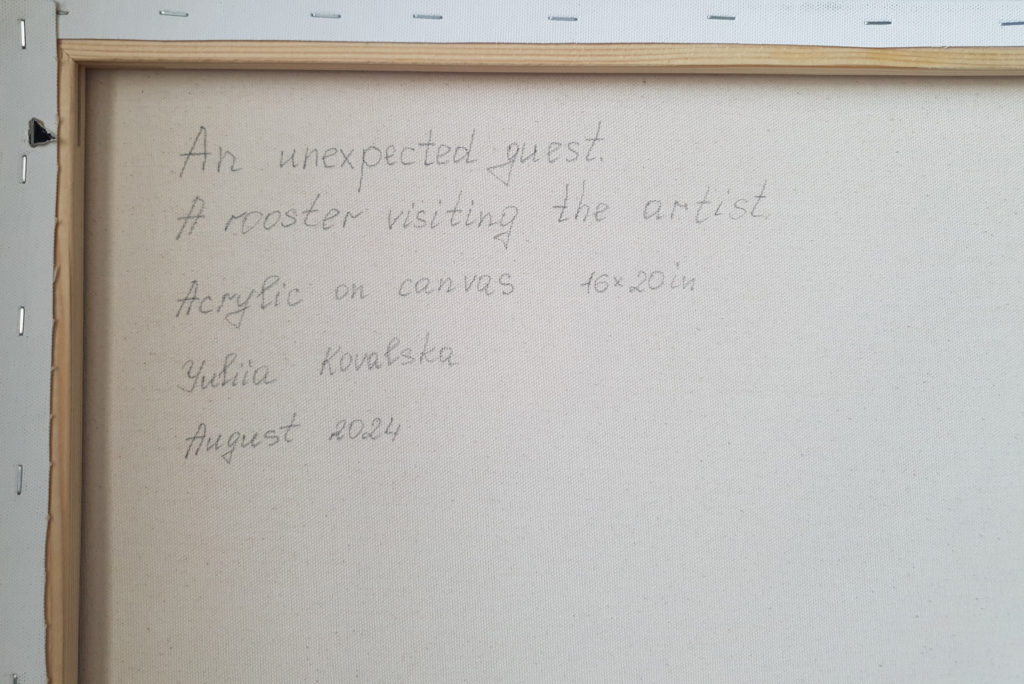 An unexpected guest.
A rooster visiting the artist.
Acrylic on canvas 16×20in
Yuliia Kovalska
August 2024